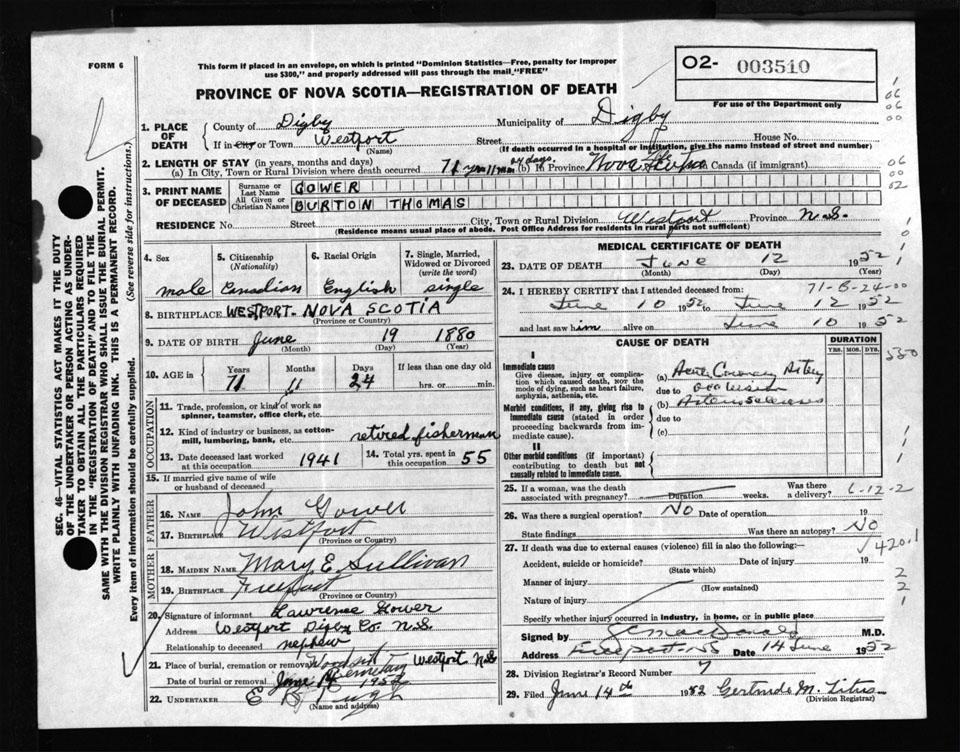 FORM 6
This form if placed in an envelope, on which is printed "Dominion Statistics—Free, penalty for improper
use $300," and properly addressed will pass through the mail "FREE"
PROVINCE OF NOVA SCOTIA—REGISTRATION OF DEATH
02- 003510
For use of the Department only
1. PLACE OF DEATH
County of Digby Municipality of Digby
If in City or Town Westport Street House No.
(Name) (If death occurred in a hospital or institution, give the name instead of street and number)
2. LENGTH OF STAY (in years, months and days)
(a) In City, Town or Rural Division where death occurred 71 yrs 11 mos 24 days. (b) In Province Life Nova Scotia Canada (if immigrant)
3. PRINT NAME OF DECEASED
Surname or Last Name GOWER
All Given or Christian Names BURTON THOMAS
RESIDENCE No. Street City, Town or Rural Division Westport Province N.S.
(Residence means usual place of abode. Post Office Address for residents in rural parts not sufficient)
4. Sex male
5. Citizenship (Nationality) Canadian
6. Racial Origin English
7. Single, Married, Widowed or Divorced (write the word) single
8. BIRTHPLACE WESTPORT- NOVA SCOTIA
(Province or Country)
9. DATE OF BIRTH June 19 1880
(Month) (Day) (Year)
10. AGE in Years 71 Months 11 Days 24 If less than one day old
hrs. or min.
OCCUPATION
11. Trade, profession, or kind of work as
spinner, teamster, office clerk, etc.
12. Kind of industry or business, as cotton-
mill, lumbering, bank, etc. retired fisherman
13. Date deceased last worked at this occupation 1941
14. Total yrs. spent in this occupation 55
15. If married give name of wife
or husband of deceased
FATHER
16. NAME John Gower
17. BIRTHPLACE Westport
(Province or Country)
MOTHER
18. MAIDEN NAME Mary E. Sullivan
19. BIRTHPLACE Freeport
(Province or Country)
20. Signature of informant Lawrence Gower
Address Westport Digby Co. N.S.
Relationship to deceased nephew
21. Place of burial, cremation or removal Cemetary Westport N.S.
Date of burial or removal June 14 1952
22. UNDERTAKER
(Name and address)
MEDICAL CERTIFICATE OF DEATH
23. DATE OF DEATH June 12 1952
(Month) (Day) (Year)
24. I HEREBY CERTIFY that I attended deceased from: 71-B-24-00
June 10 1952 to June 12 1952
and last saw him alive on June 10 1952
CAUSE OF DEATH
DURATION
YRS. MOS. DYS.
I
Immediate cause
Give disease, injury or complication which caused death, not the mode of dying, such as heart failure, asphyxia, asthenia, etc.
(a) Acute Coronary Artery
due to occlusion
Morbid conditions, if any, giving rise to immediate cause (stated in order proceeding backwards from immediate cause).
(b) Arteriosclerosis
due to
(c)
II
Other morbid conditions (if important) contributing to death but not causally related to immediate cause.
25. If a woman, was the death associated with pregnancy? Duration weeks. Was there a delivery? 6-12-2
26. Was there a surgical operation? NO Date of operation 19
State findings Was there an autopsy? NO
27. If death was due to external causes (violence) fill in also the following:— 420.1
Accident, suicide or homicide? Date of injury 19
(State which)
Manner of injury
(How sustained)
Nature of injury
Specify whether injury occurred in industry, in home, or in public place
Signed by MacDonald M.D.
Address Freeport-NS Date 14 June 1952
28. Division Registrar's Record Number 7
29. Filed June 14th 1952 Gertrude M. Titus
(Division Registrar)
SEC. 46—VITAL STATISTICS ACT MAKES IT THE DUTY
OF THE UNDERTAKER OR PERSON ACTING AS UNDER-
TAKER TO OBTAIN ALL THE PARTICULARS REQUIRED
IN THE "REGISTRATION OF DEATH" AND TO FILE THE
SAME WITH THE DIVISION REGISTRAR WHO SHALL ISSUE THE BURIAL PERMIT.
WRITE PLAINLY WITH UNFADING INK. THIS IS A PERMANENT RECORD.
Every item of information should be carefully supplied. (See reverse side for instructions.)